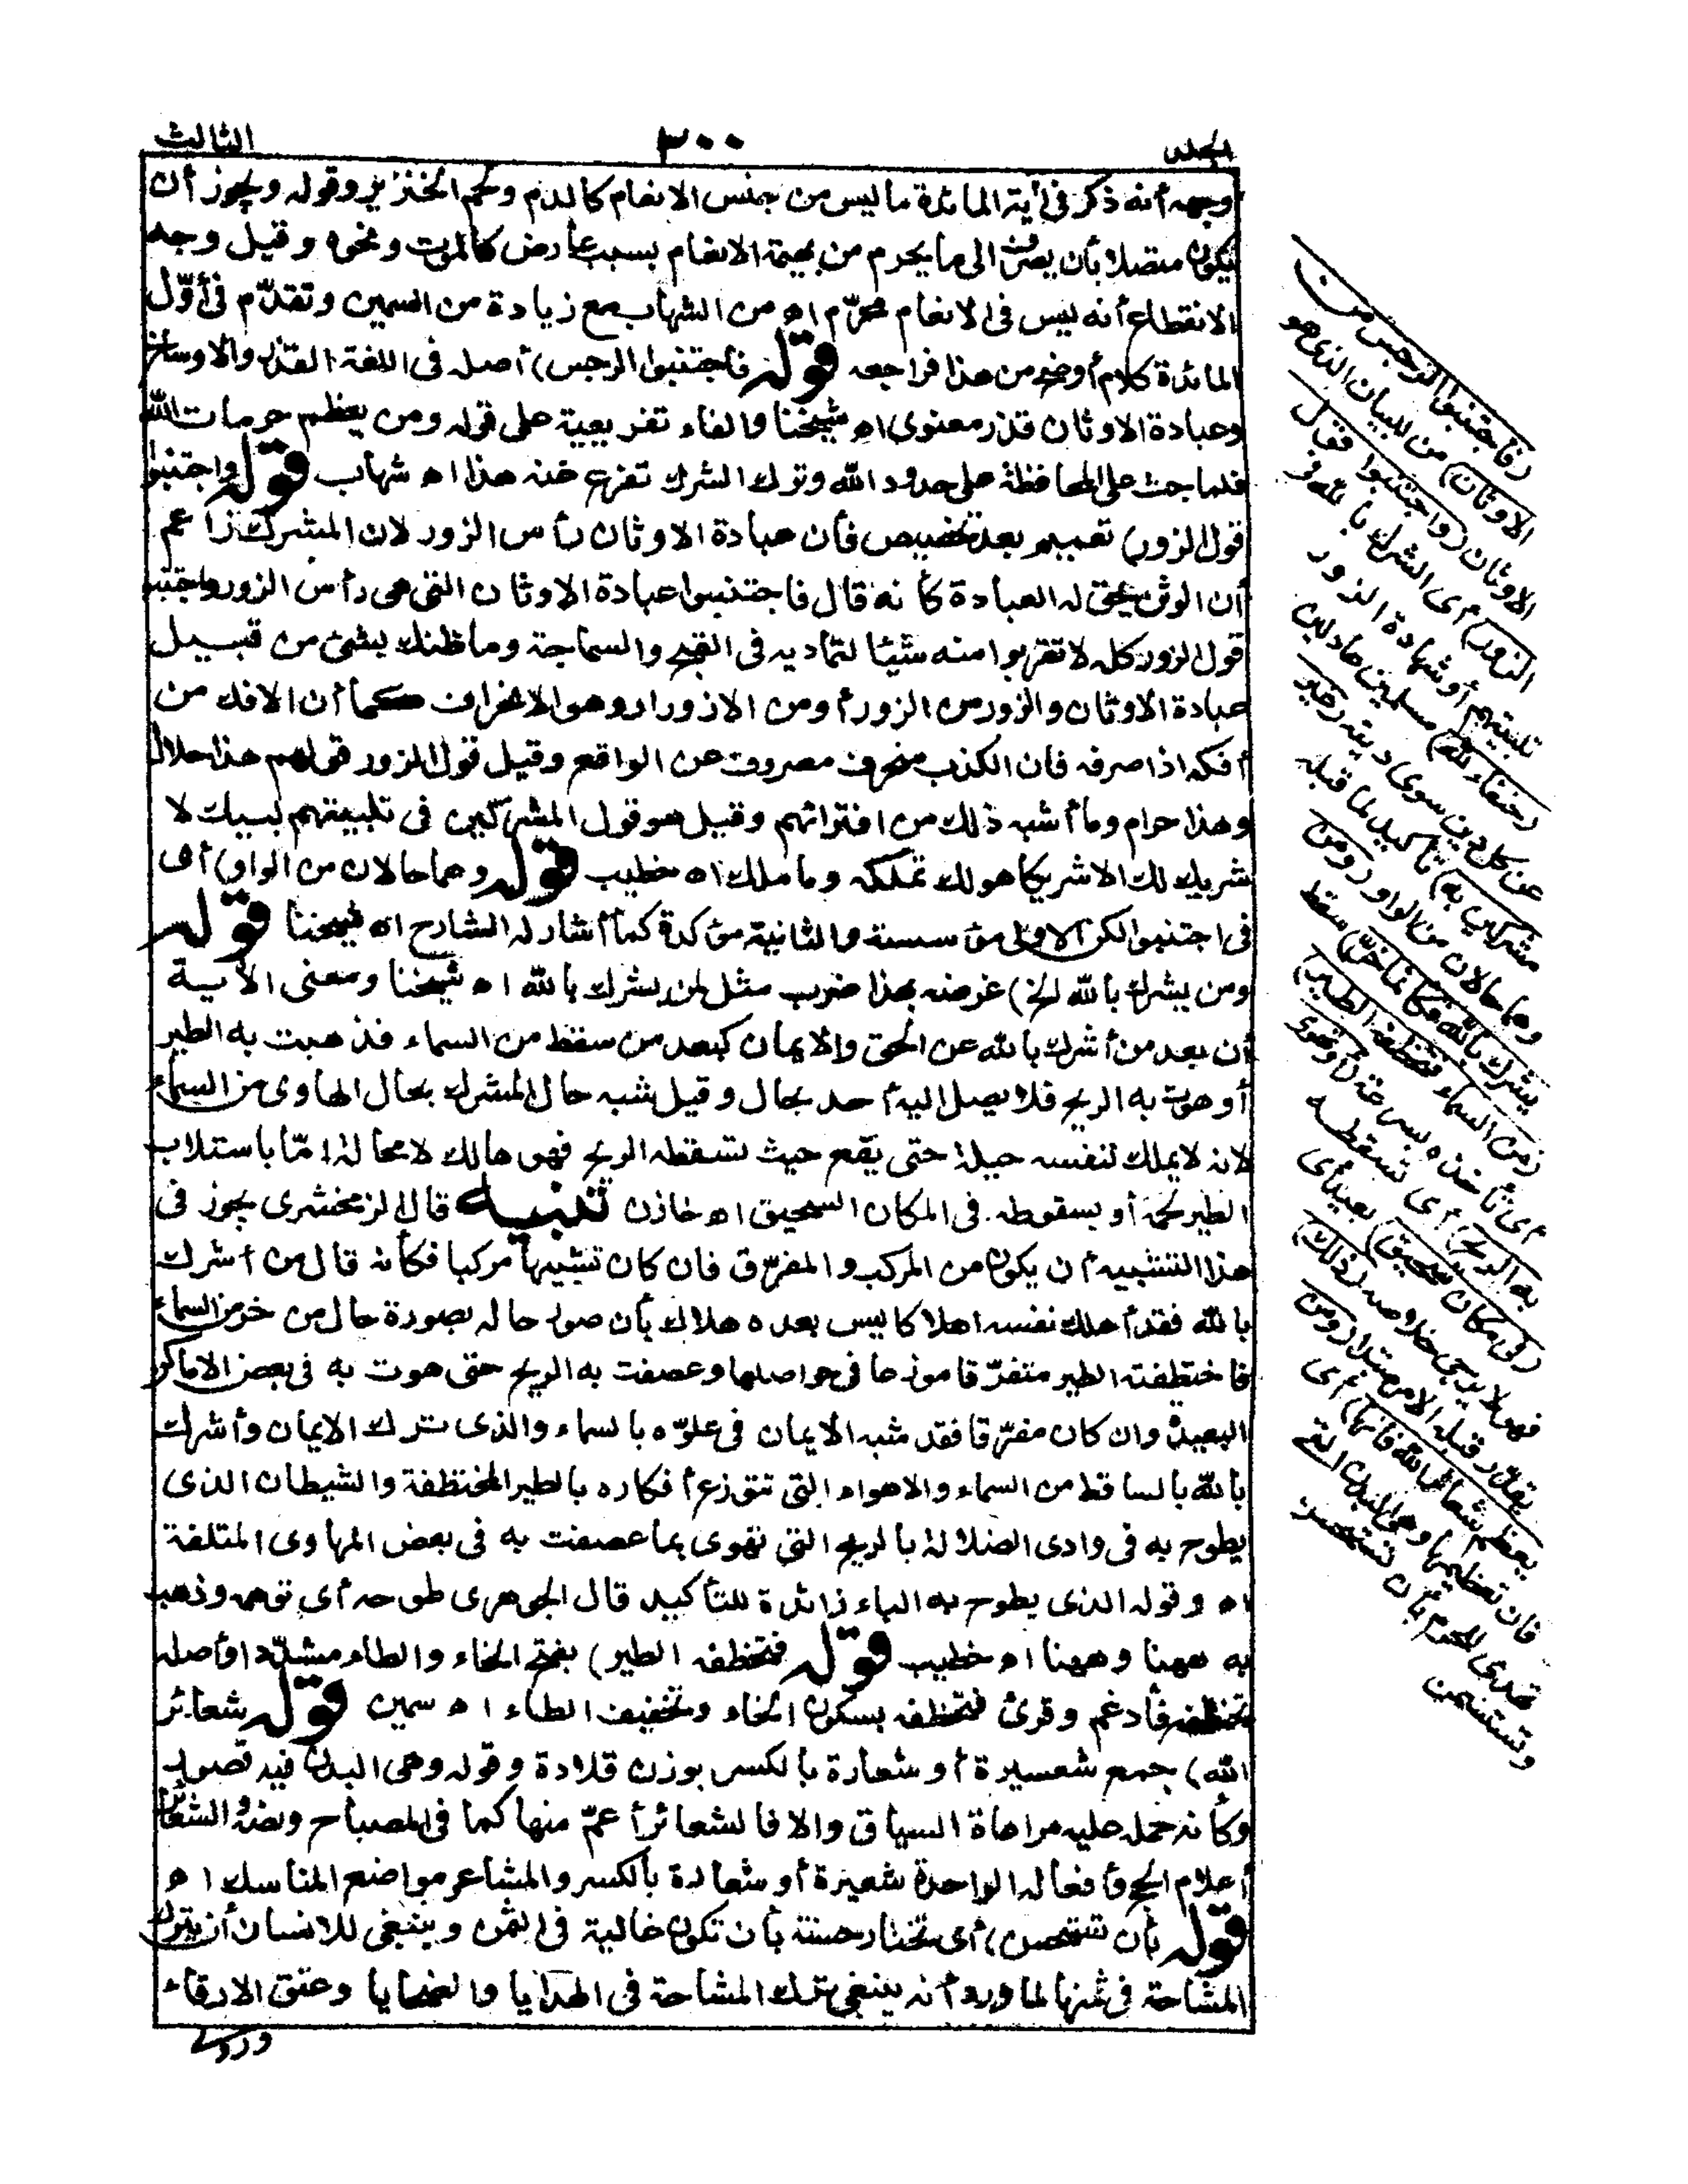 الجلد ٣٠٠ الثالث
وجهه أنه ذكر فى آية المائدة ما ليس من جنس الانعام كالدم ولحم الخنزير وقوله ويجوز أن
يكون متصلا بأن يصرف الى ما يحرم من بهيمة الانعام بسبب عارض كالموت ونحوه وقيل وجه
الانقطاع أنه ليس فى الانعام محرّم اه من الشهاب مع زيادة من السمين وتقدّم فى أوّل
المائدة كلام أوضح من هذا فراجعه قوله فاجتنبوا الرجس) أصله فى اللغة القذر والاوساخ
وعبادة الاوثان قذر معنوى اه شيخنا والفاء تفريعية على قوله ومن يعظم حرمات الله
فلما حث على المحافظة على حدود الله وترك الشرك تفرع عنه هذا اه شهاب قوله واجتنبوا
قول الزور) تعميم بعد تخصيص فأن عبادة الاوثان رأس الزور لان المشرك زاعم
أن الوثن يحق له العبادة كأنه قال فاجتنبوا عبادة الاوثان التى هى رأس الزور واجتنبوا
قول الزور كله لا تقربوا منه شيئا لتماديه فى القبح والسماجة وما ظنك بشئ من قبيل
عبادة الاوثان والزور من الزور أو من الازورار وهو الانحراف كما أن الافك من
أفكه اذا صرفه فان الكذب منحرف مصروف عن الواقع وقيل قول الزور قولهم هذا حلال
وهذا حرام وما أشبه ذلك من افترائهم وقيل هو قول المشركين فى تلبيتهم لبيك لا
شريك لك الا شريكا هو لك تملكه وما ملك اه خطيب قوله وهما حالان من الواو) أى
فى اجتنبوا لكن الاولى مؤسسة والثانية مؤكدة كما أشار له الشارح اه شيخنا قوله
ومن يشرك بالله الخ) غرضه بهذا ضرب مثل لمن يشرك بالله اه شيخنا ومعنى الآية
أن بعد من أشرك بالله عن الحق والايمان كبعد من سقط من السماء فذهبت به الطير
أو هوت به الريح فلا يصل اليه أحد بحال وقيل شبه حال المشرك بحال الهاوى من السماء
لانه لا يملك لنفسه حيلة حتى يقع حيث تسقطه الريح فهو هالك لا محالة امّا باستلاب
الطير لحمه أو بسقوطه فى المكان السحيق اه خازن تنبيه قال الزمخشرى يجوز فى
هذا التشبيه أن يكون من المركب والمفرّق فان كان تشبيها مركبا فكأنه قال من أشرك
بالله فقد أهلك نفسه اهلاكا ليس بعده هلاك بأن صور حاله بصورة حال من خر من السماء
فاختطفته الطير متفرّقا موزعا فى حواصلها وعصفت به الريح حتى هوت به فى بعض الاماكن
البعيدة وان كان مفرّقا فقد شبه الايمان فى علوّه بالسماء والذى ترك الايمان وأشرك
بالله بالساقط من السماء والاهواء التى تتوزع أفكاره بالطير المختطفة والشيطان الذى
يطوح به فى وادى الضلالة بالريح التى تهوى بما عصفت به فى بعض المهاوى المتلفة
اه وقوله الذى يطوح به الباء زائدة للتأكيد قال الجوهرى طوحه أى توهه وذهب
به ههنا وههنا اه خطيب قوله فتخطفه الطير) بفتح الخاء والطاء مشدّدا وأصله
تختطفه فأدغم وقرئ فتخطفه بسكون الخاء وتخفيف الطاء اه سمين قوله شعائر
الله) جمع شعيرة أو شعارة بالكسر بوزن قلادة وقوله وهى البدن فيه قصور
وكأنه حمله عليه مراعاة السياق والا فالشعائر أعمّ منها كما فى المصباح ونصه والشعائر
أعلام الحج وأفعاله الواحدة شعيرة أو شعارة بالكسر والمشاعر مواضع المناسك اه
قوله بأن تستحسن) أى تختار حسنة بأن تكون غالية فى الثمن وينبغى للانسان أن يترك
المشاحة فى ثمنها لما ورد أنه ينبغى ترك المشاحة فى الهدايا والضحايا وعتق الارقاء
(فاجتنبوا الرجس من
الاوثان) من للبيان الذى هو
الاوثان (واجتنبوا قول
الزور) أى الشرك بالله فى
تلبيتهم أو شهادة الزور
(حنفاء لله) مسلمين عادلين
عن كل دين سوى دينه (غير
مشركين به) تأكيد لما قبله
وهما حالان من الواو (ومن
يشرك بالله فكأنما خرّ) سقط
(من السماء فتخطفه الطير)
أى تأخذه بسرعة (أو تهوى
به الريح) أى تسقطه
(فى مكان سحيق) بعيد أى
فهو لا يرجى خلاصه (ذلك)
يقدر قبله الامر مبتدا (ومن
يعظم شعائر الله فانها) أى
فان تعظيمها وهى البدن التى
تهدى للحرم بأن تستحسن
وتستسمن